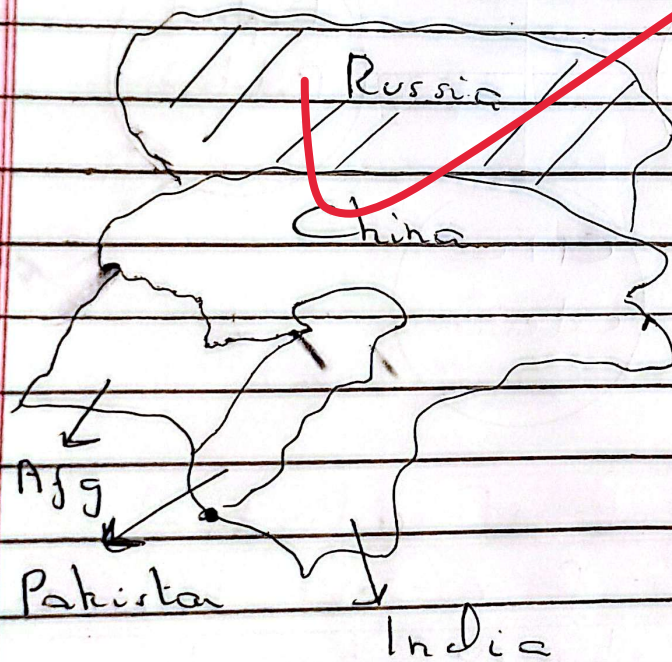 Russia
China
Afg
Pakista
India